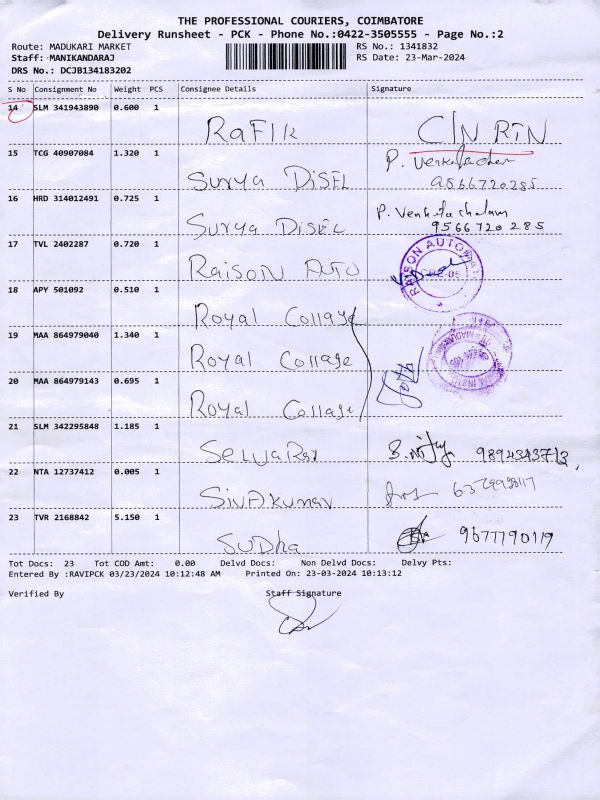 THE PROFESSIONAL COURIERS, COIMBATORE
Delivery Runsheet - PCK - Phone No.:0422-3505555 - Page No.:2
Route: MADUKARI MARKET RS No.: 1341832
Staff: MANIKANDARAJ RS Date: 23-Mar-2024
DRS No.: DCJB134183202
S No Consignment No Weight PCS Consignee Details Signature
14 SLM 341943890 0.600 1 Rafik C/N RTN
15 TCG 40907084 1.320 1 Surya Disel P. Venkatachalam
9566720285
16 HRD 314012491 0.725 1 Surya Disel P. Venkatachalam
9566720285
17 TVL 2402287 0.720 1 Raison Auto RAISON AUTO
18 APY 501092 0.510 1 Royal Collage
19 MAA 864979040 1.340 1 Royal Collage
20 MAA 864979143 0.695 1 Royal Collage
21 SLM 342295848 1.185 1 Selvaraj
22 NTA 12737412 0.005 1 Sivakumar
23 TVR 2168842 5.150 1 Sudha 9677790119
Tot Docs: 23 Tot COD Amt: 0.00 Delvd Docs: Non Delvd Docs: Delvy Pts:
Entered By :RAVIPCK 03/23/2024 10:12:48 AM Printed On: 23-03-2024 10:13:12
Verified By Staff Signature